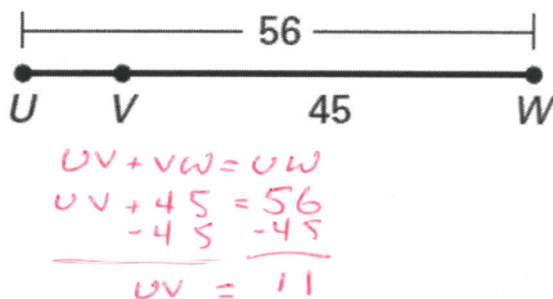 56
U V 45 W
UV + VW = UW
UV + 45 = 56
-45 -45
UV = 11